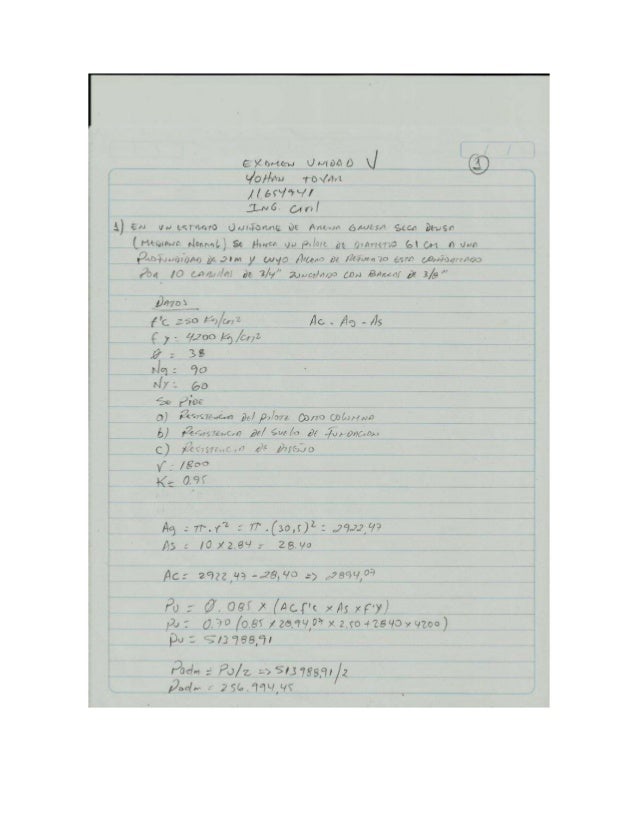 EXAMEN UNIDAD V
1
YOHAN TOVAR
11654941
ING. Civil
1) EN UN ESTRATO UNIFORME DE ARENA GRUESA SECA DENSA
(MEDIANO NORMAL) SE HINCA UN PILOTE DE DIAMETRO 61 CM A UNA
PROFUNDIDAD DE 21M Y CUYO ACERO DE REFUERZO ESTA CONFORMADO
POR 10 CABILLAS DE 3/4" ZUNCHADO CON BARRAS DE 3/8"
DATOS
f'c = 250 Kg/cm2 Ac - Ag - As
f y: 4200 Kg/cm2
Ø = 38
Nq: 90
Nγ: 60
Se PIDE
a) RESISTENCIA Del PILOTE COMO COLUMNA
b) RESISTENCIA Del SUELO DE FUNDACION
c) RESISTENCIA DE DISEÑO
γ: 1800
K= 0.95
Ag = π.r² = π.(30,5)² = 2922,47
As = 10 x 2.84 = 28.40
Ac= 2922,47 - 28,40 => 2894,07
Pu = 0.085 x (Ac f'c x As x f'y)
Pu = 0.70 (0.85 x 2894,07 x 2.50 + 2840 x 4200)
Pu = 513988,91
Padm = Pu/2 => 513988,91/2
Padm = 256.994,45